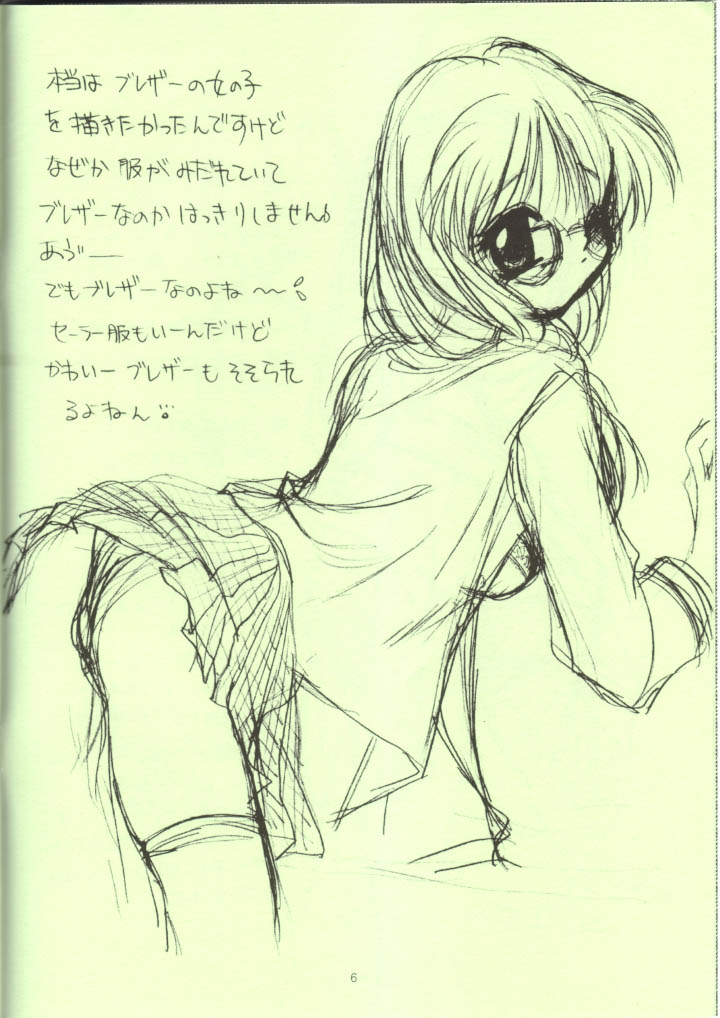 本当は ブレザーの女の子
を描きたかったんですけど
なぜか服がみだれていて
ブレザーなのか はっきりしません♪
あう゛ー
でもブレザーなのよね〜〜
セーラー服もいーんだけど
かわいー ブレザーも そそられ
るよねん
6